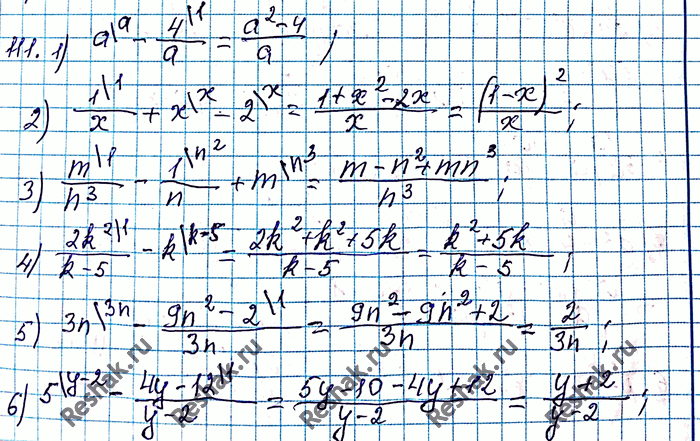 111. 1) a\a - 4\1/a = a²-4/a ;
2) 1\1/x + x\x - 2\x = 1+x²-2x/x = (1-x)²/x ;
3) m\1/n³ - 1\n²/n + m\n³ = m-n²+mn³/n³ ;
4) 2k²\1/k-5 - k\k-5 = 2k²+k²+5k/k-5 = k²+5k/k-5 ;
5) 3n\3n - 9n²-2\1/3n = 9n²-9n²+2/3n = 2/3n ;
6) 5\y-2 - 4y-12\1/y-2 = 5y-10-4y+12/y-2 = y+2/y-2 ;
Reshak.ru Reshak.ru Reshak.ru Reshak.ru